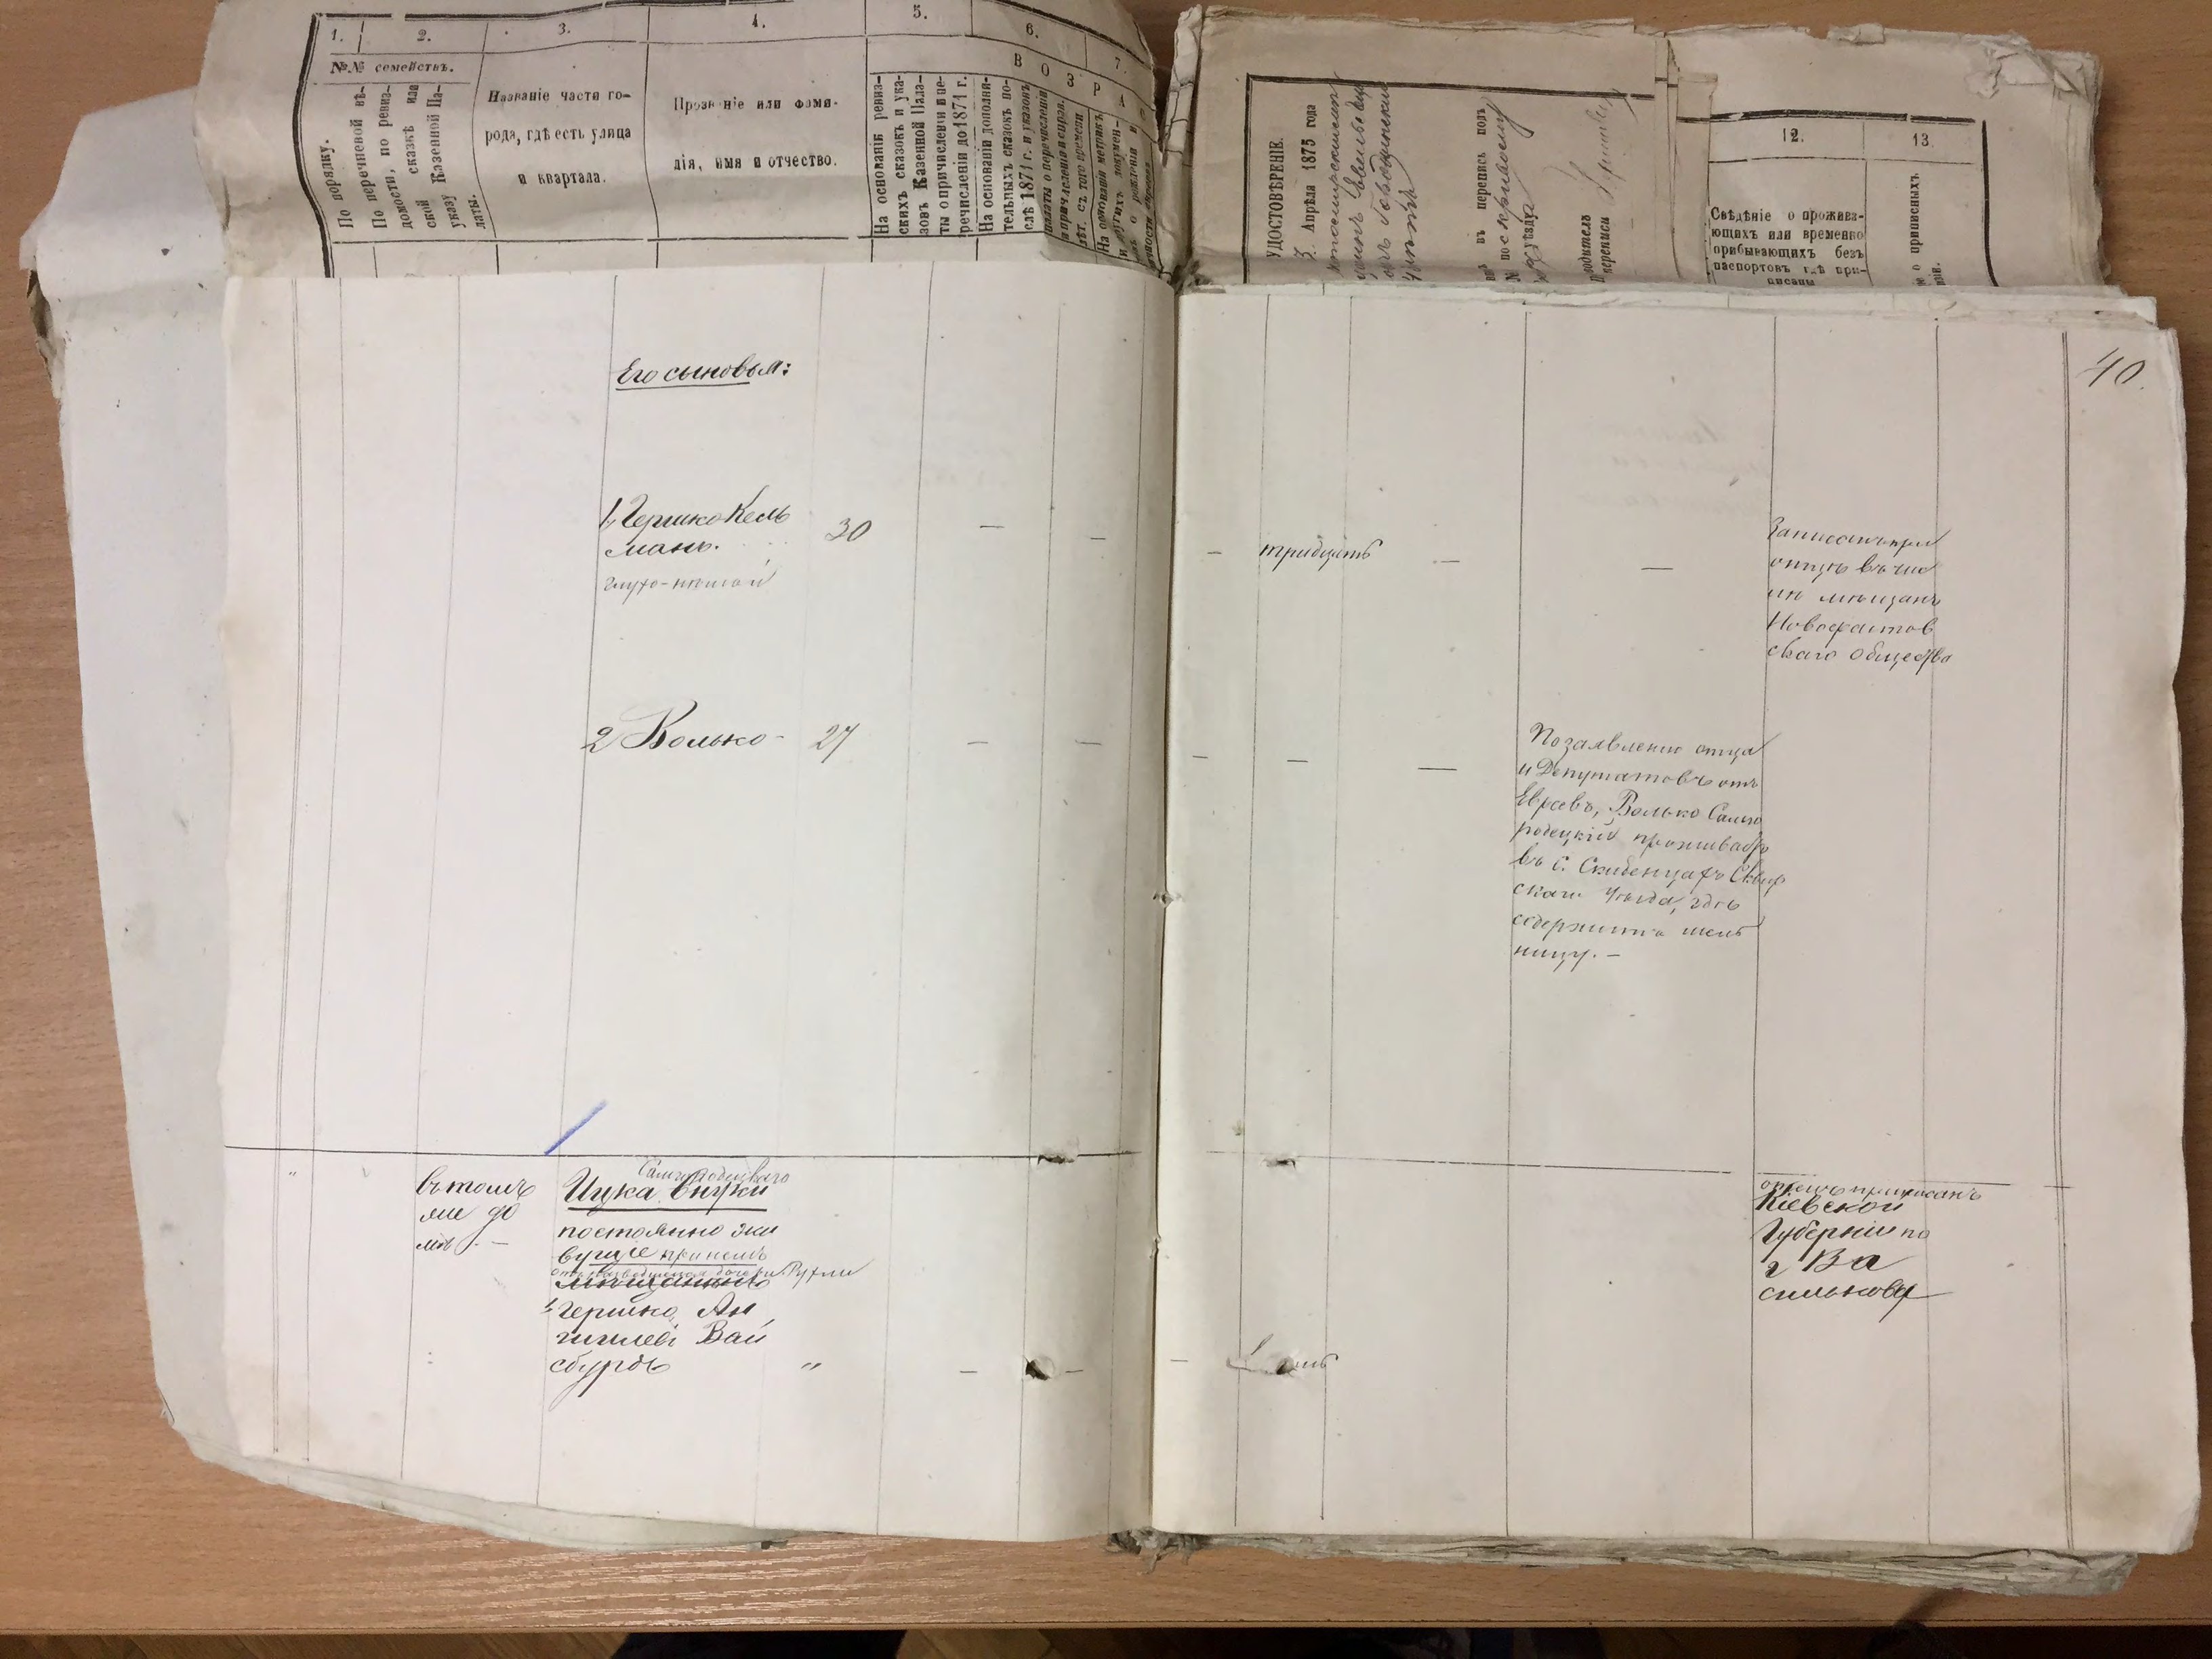 1.
2.
3.
4.
5.
6.
7.
№№ семействъ.
По порядку.
По перечневой вѣ-
домости, по ревиз-
ской сказкѣ или
указу Казенной Па-
латы.
Названіе части го-
рода, гдѣ есть улица
и квартала.
Прозваніе или фами-
лія, имя и отчество.
В О З Р А С
На основаніи ревиз-
скихъ сказокъ и ука-
зовъ Казенной Пала-
ты о причисленіи и пе-
речисленіи до 1871 г.
На основаніи дополни-
тельныхъ сказокъ по-
слѣ 1871 г. и указовъ
палаты о перечисленіи
На основаніи метрикъ
УДОСТОВѢРЕНІЕ.
3 Апрѣля 1875 года
въ перепись подъ
№ по
уѣзда
переписи
12.
13.
Свѣдѣніе о прожива-
ющихъ или временно
прибывающихъ безъ
паспортовъ гдѣ при-
писаны
о приписныхъ
40.
Его сыновья:
1, Гершко Кель
манъ.
глухо-нѣмой
30
—
—
—
тридцать
—
—
Записанъ при
отцѣ въ чис
лѣ мѣщанъ
Новофастов
скаго общества
2 Волько -
27
—
—
—
—
—
По заявленію отца
и Депутатовъ отъ
Евреевъ, Волько Самго
родецкій проживаетъ
въ с. Скибенцахъ Сквир
скаго уѣзда, гдѣ
содержитъ мель
ницу. —
"
въ томъ
же до
мѣ. —
Самгородецкаго
Ицка внуки
постоянно жи
вущіе при немъ
отъ разведшейся дочери Рухли
мѣщанинъ
1, Гершко Ян
килевъ Вай
сбурдъ
"
—
—
—
отецъ приписанъ
Кіевской
Губерніи по
г Ва
силькову